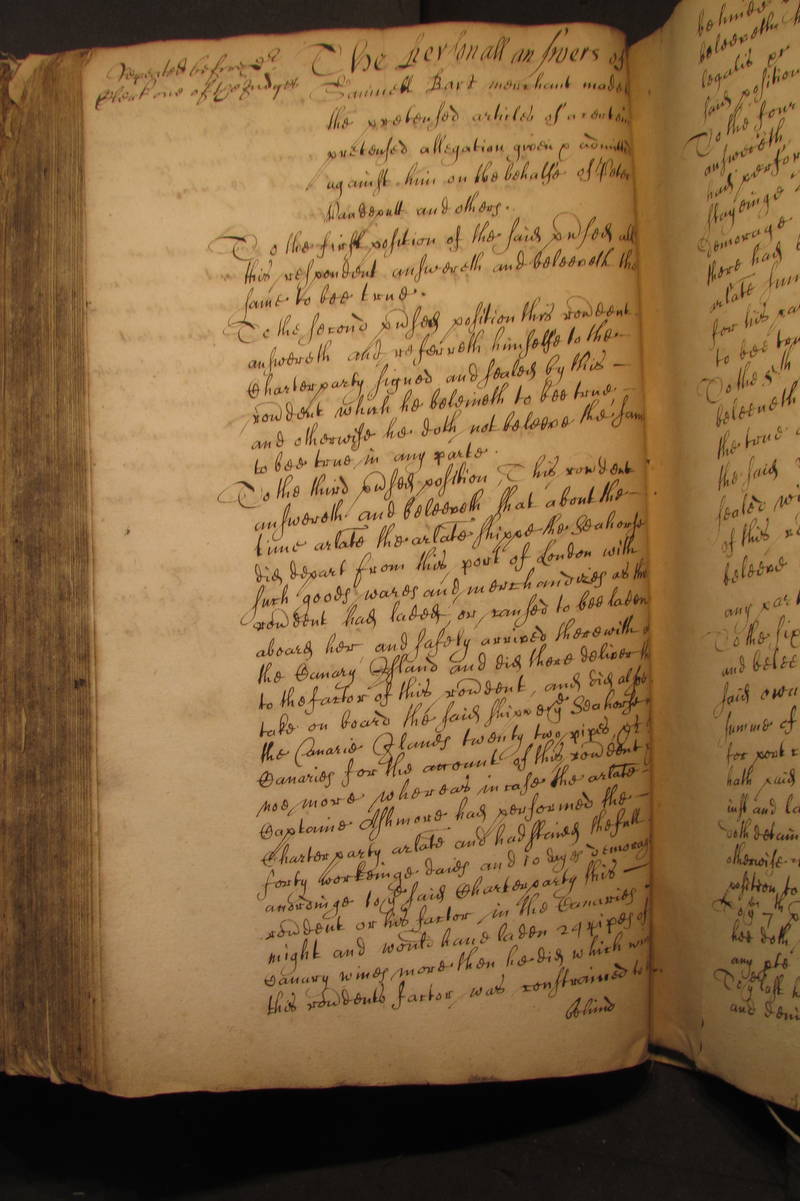 Repeated before d.r
Clerk one of the Judges
The personall answers of
Samuell Bart merchant made
the pretensed articles of a certein
pretensed allegation given & admitted
against him on the behalfe of Peter
Vandeputt and others.
To the first position of the said pnsed all
this respondent answereth and beleeveth the
same to bee true.
To the second pnsed position this rondent
answereth and referreth himselfe to the
Charter party signed and sealed by this
rondent which he beleiveth to bee true,
and otherwise he doth not beleeve the same
to bee true in any parte.
To the third pnsed position, This rondent
answereth and beleeveth that about the
time arlate the arlate shippe the Seahorse
did depart from this port of London with
such goods wares and merchandizes as this
rondent had laded, or caused to bee laden
aboard her, and safely arrived therewith
the Canary Island and did there deliver
to the factor of this rondent, and did alsoe
take on board the said shippe ye Seahorse
the Canarie Islands twenty two pipes of
Canaries for the account of this rondent
noe more whereas in case the arlate
Captaine Ashmore had performed the
Charter party arlate and had stained the full
forty workeinge daies and 10 dayes demorage
accordinge to ye said Charter party this
rondent or his factor in the Canaries
might and would have laden 24 pipes of
Canary wines more then he did which
this rondents factor was constrained to
behind
behinde
beleeveth
legalis
said position
To the four
answereth
had perfor
stayeinge
Demorage
there had
arlate sum
for his
to bee tru
To the 5th
beleeveth
the true
the said
sealed wi
of this
beleeve
any part
To the six
and belee
said
summe of
for port
hath paid
inst and la
doth detain
otherwise
position to
To ye 7th
hee doth
any pte
To ye last
and deni